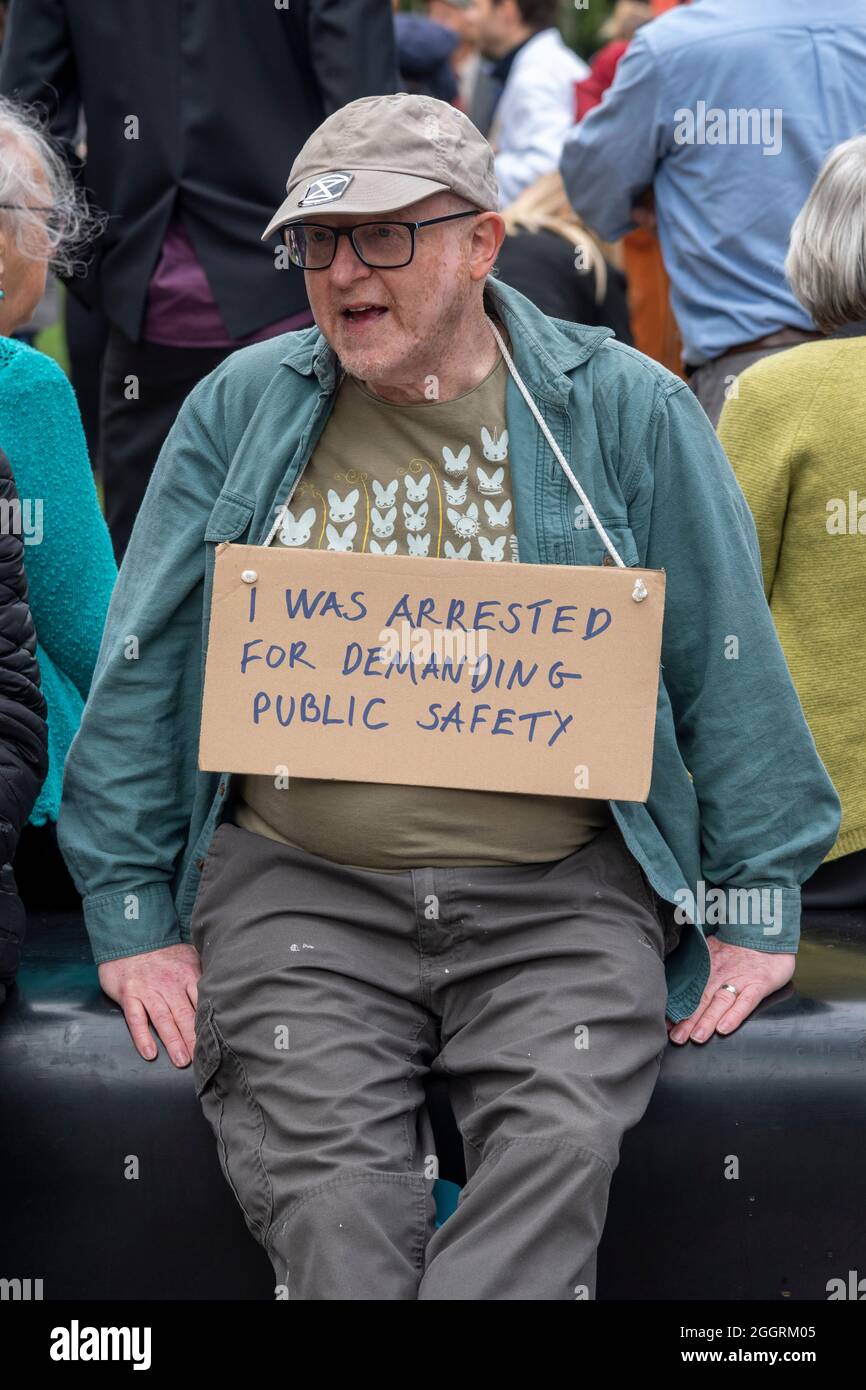 I WAS ARRESTED
FOR DEMANDING
PUBLIC SAFETY
alamy
Image ID: 2GGRM05
www.alamy.com